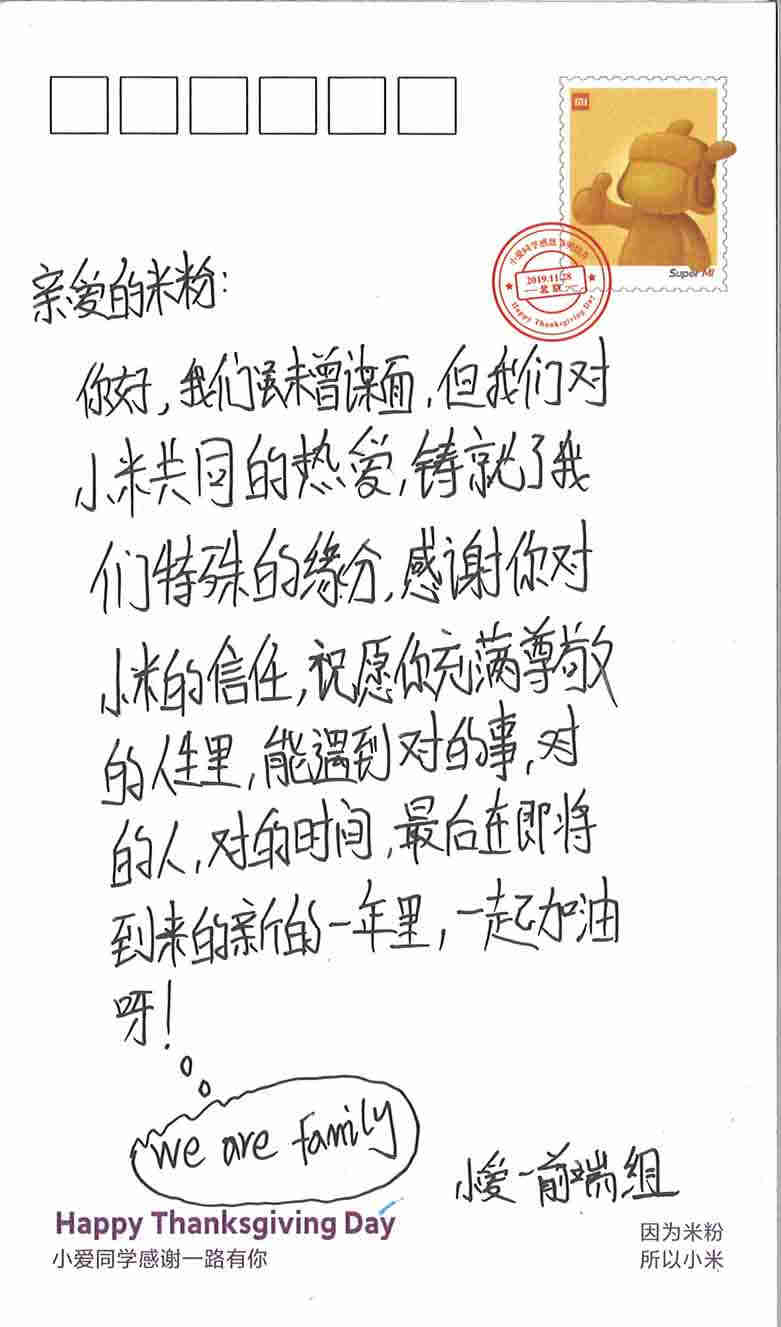 MI
Super MI
小爱同学感恩
2019.11.28
北京
Happy Thanksgiving Day
亲爱的米粉:
你好,我们虽未曾谋面,但我们对
小米共同的热爱,铸就了我
们特殊的缘分,感谢你对
小米的信任,祝愿你充满尊敬
的人生里,能遇到对的事,对
的人,对的时间,最后在即将
到来的新的一年里,一起加油
呀!
we are family
小爱-前端组
Happy Thanksgiving Day
小爱同学感谢一路有你
因为米粉
所以小米